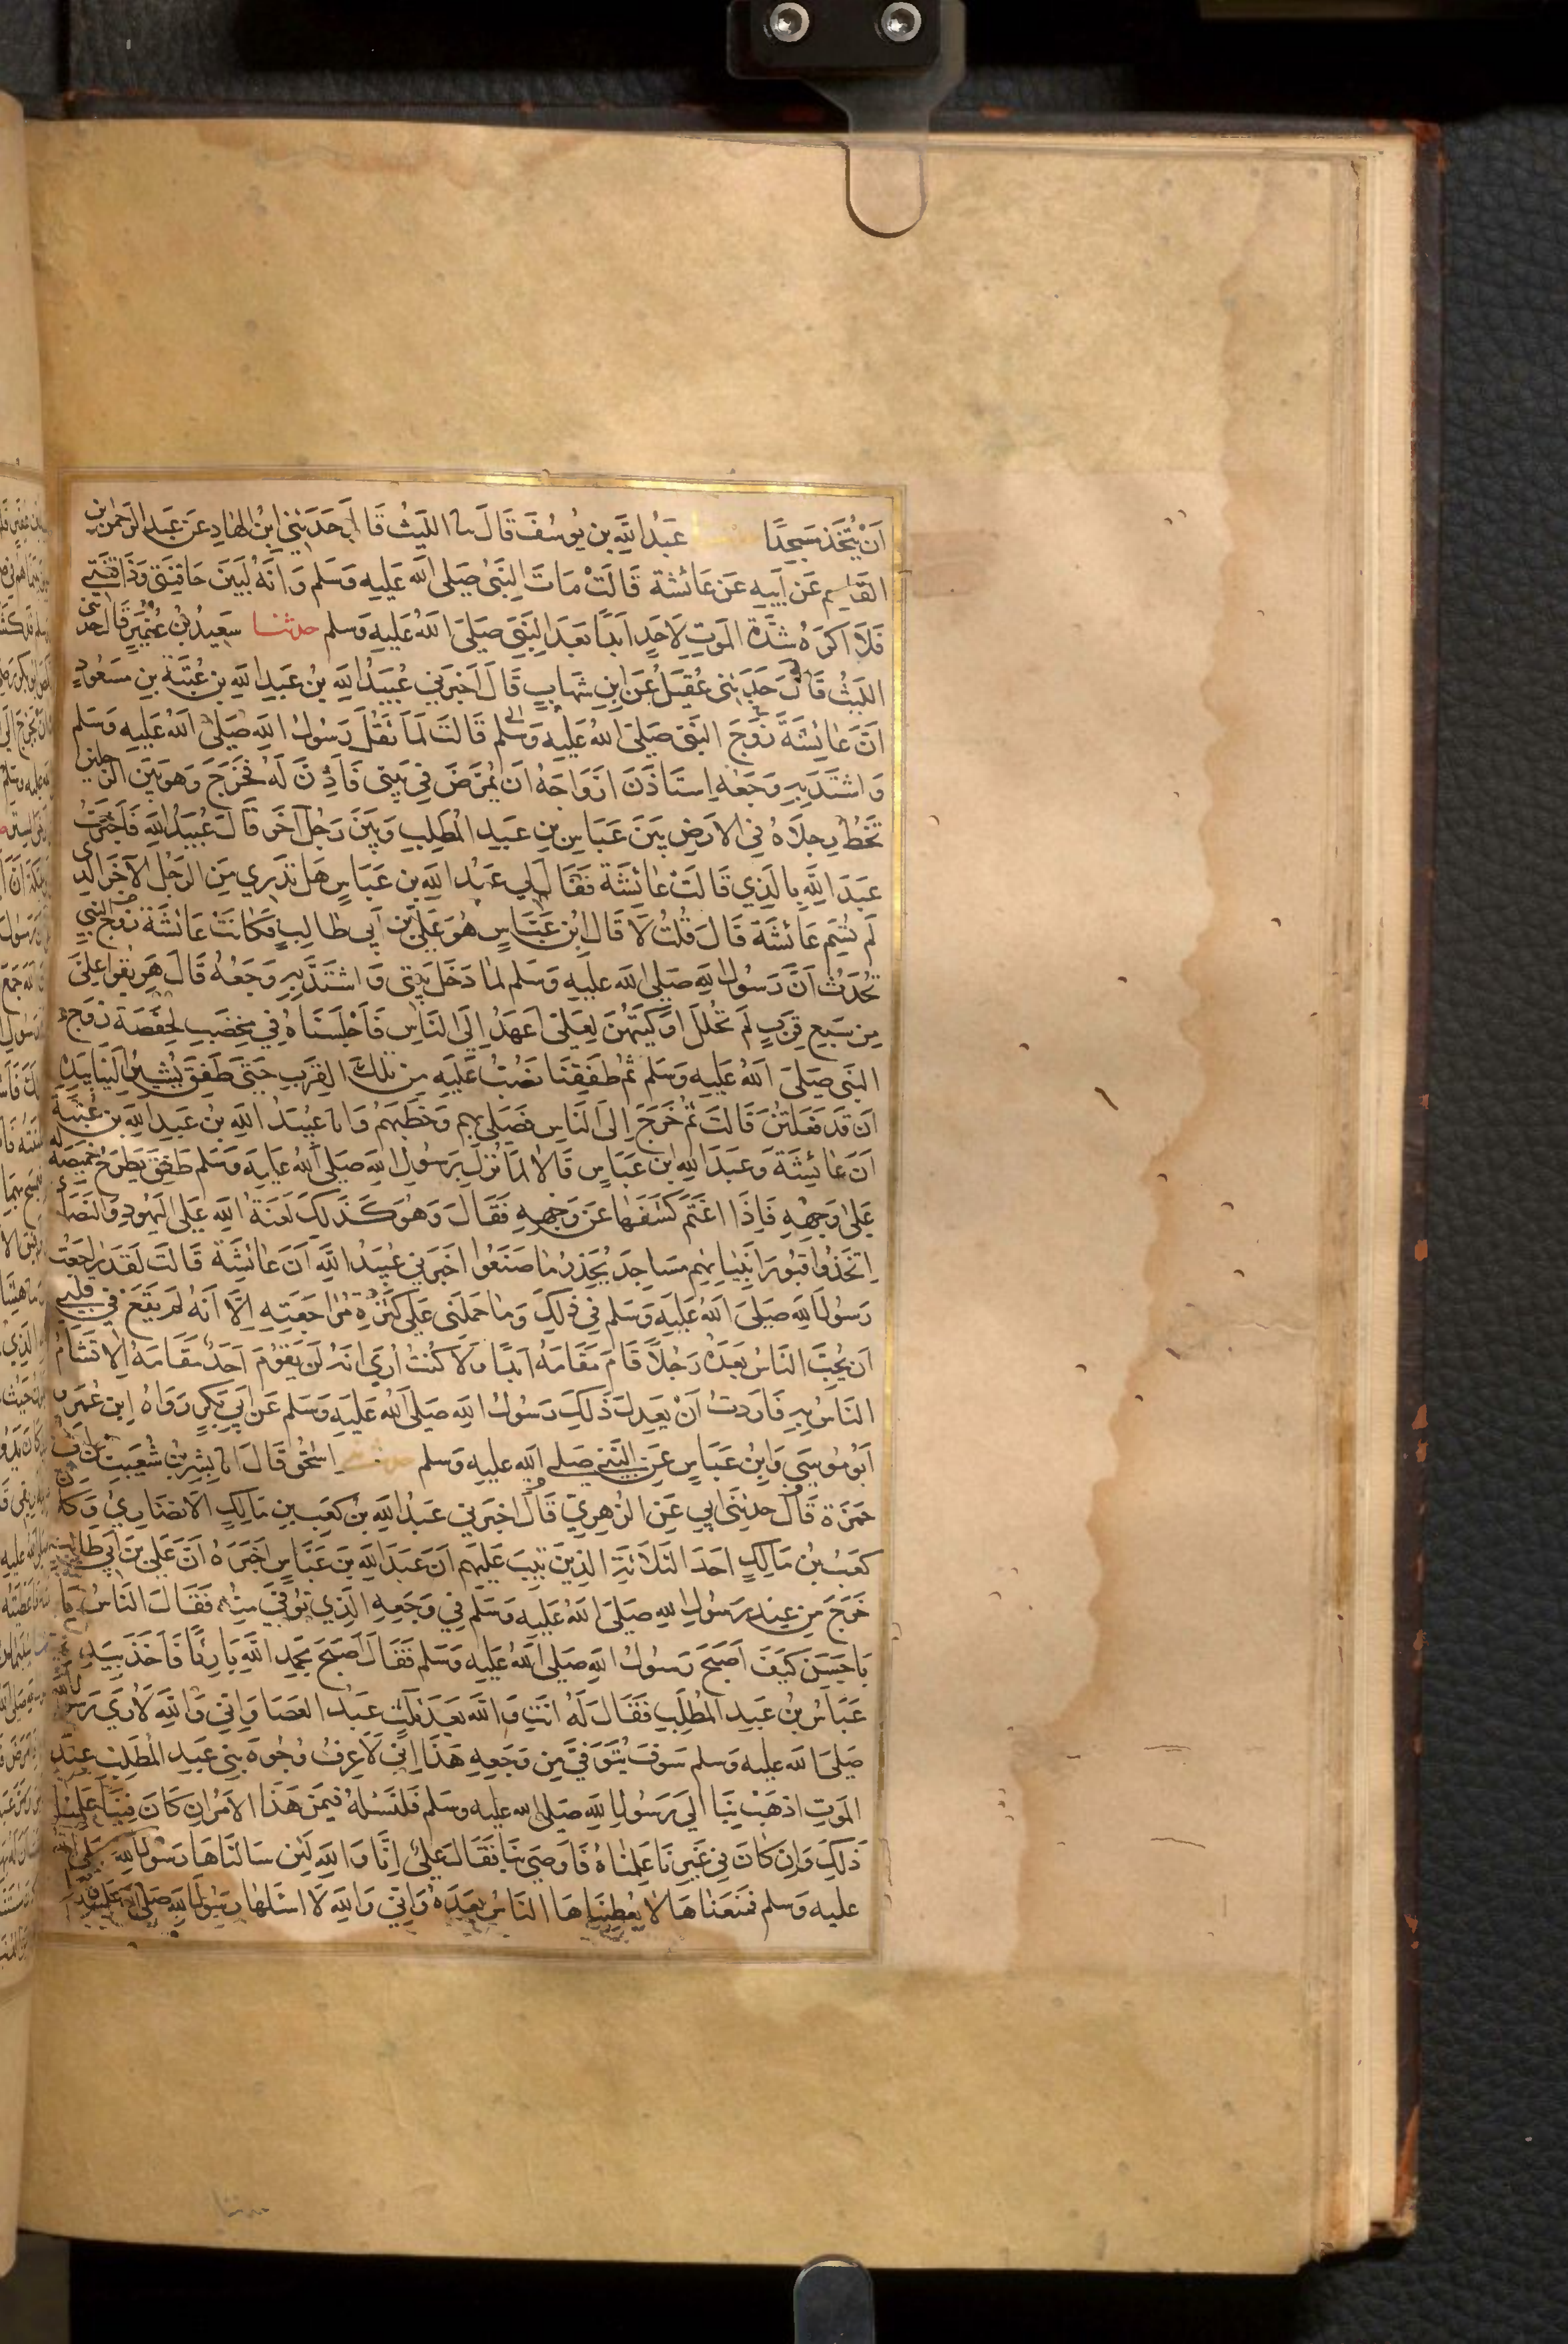 اَنْ يُتَّخَذَ مَسْجِدًا عَبْدُ اللّٰهِ بن يُوسُفَ قَالَ نا اللَّيْثُ قَالَ حَدَّثَنِي ابْنُ الهَادِ عَنْ عَبْدِ الرَّحْمٰنِ بن
القَاسِمِ عَنْ اَبِيهِ عَنْ عَائشَة قَالَتْ مَاتَ النَّبِيُّ صَلى اللّه عَلَيهِ وَسَلم وَاَنَّهُ لَبَيْنَ حَاقِنَتِي وَذَاقِنَتِي
فَلَا اَكْرَهُ شِدَّةَ المَوتِ لِاَحَدٍ اَبَدًا بَعْدَ النَّبِيِّ صَلىَ اللّهُ عَلَيهِ وَسَلم حدثنا سَعِيدُ بْنُ عُفَيْرٍ قَالَ حدثنى
اللَّيْثُ قَالَ حَدَّثَنِى عُقَيْلٌ عَنِ ابْنِ شِهَابٍ قَالَ اَخْبَرَنِي عُبَيْدُ اللّهِ بْنُ عَبْدِ اللّهِ بن عُتْبَةَ بْنِ مَسْعُودٍ
اَنَّ عَائِشَةَ زَوْجَ النَّبِيِّ صَلىَ اللّهُ عَلَيهِ وَسَلم قَالَتْ لَمَّا ثَقُلَ رَسُولُ اللّهِ صَلى اللّهُ عَلَيهِ وَسَلم
وَاشْتَدَّ بِهِ وَجَعُهُ اِسْتَأذَنَ اَزْوَاجَهُ اَنْ يُمَرَّضَ فِي بَيْتِي فَاَذِنَّ لَهُ فَخَرَجَ وَهُوَ بَيْنَ الرَّجُلَيْنِ
تَخُطُّ رِجْلَاهُ فِي الاَرْضِ بَيْنَ عَبَّاسِ بْنِ عَبْدِ المُطَّلِبِ وَبَيْنَ رَجُلٍ آخَرَ قَالَ عُبَيْدُ اللّهِ فَاَخْبَرْتُ
عَبْدَ اللّهِ بِالَّذِي قَالَتْ عَائِشَة فَقَالَ لِي عَبْدُ اللّهِ بن عَبَّاسٍ هَلْ تَدْرِي مَنِ الرَّجُلُ الآخَرُ الذِى
لَمْ تُسَمِّ عَائِشَة قَالَ قُلْتُ لَا قَالَ ابْنُ عَبَّاسٍ هُوَ عَلِيُّ بن اَبِي طَالِبٍ فَكَانَتْ عَائشَة زَوْجُ النَّبِيِّ
تُحَدِّثُ اَنَّ رَسُولَ اللّهِ صَلى اللّه عَلَيهِ وَسَلم لَمَّا دَخَلَ بَيْتِي وَاشْتَدَّ بِهِ وَجَعُهُ قَالَ هَرِيقُوا عَلَيَّ
مِنْ سَبْعِ قِرَبٍ لَمْ تُحْلَلْ اَوْكِيَتُهُنَّ لَعَلِّي اَعْهَدُ اِلَى النَّاسِ فَاَجْلَسْنَاهُ فِي مِخْضَبٍ لِحَفْصَة زَوْجِ
النَّبِي صَلىَ اللّهُ عَلَيهِ وَسَلم ثُمَّ طَفِقْنَا نَصُبُّ عَلَيْهِ مِنْ تِلْكَ القِرَبِ حَتَّى طَفِقَ يُشِيرُ اِلَيْنَا بِيَدِهِ
اَنْ قَدْ فَعَلْتُنَّ قَالَتْ ثُمَّ خَرَجَ اِلَى النَّاسِ فَصَلى بِهِم وَخَطَبَهُمْ وَانا عُبَيْدُ اللّهِ بْنُ عَبْدِ اللّهِ بن عُتْبَة
اَنَّ عَائِشَةَ وَعَبْدَ اللّهِ بن عَبَّاسٍ قَالَا لَمَّا نَزَلَ بِرَسُولِ اللّهِ صَلى اللّهُ عَلَيهِ وَسَلم طَفِقَ يَطْرَحُ خَمِيصَةً لَهُ
عَلىٰ وَجْهِهِ فَاِذَا اغْتَمَّ كَشَفَهَا عَنْ وَجْهِهِ فَقَالَ وَهُوَ كَذَلِكَ لَعْنَةُ اللّهِ عَلَى اليَهُودِ وَالنَّصَارَى
اِتَّخَذُوا قُبُورَ اَنْبِيَائِهِمْ مَسَاجِدَ يُحَذِّرُ مَا صَنَعُوا اَخْبَرَنِي عُبَيْدُ اللّهِ اَنَّ عَائِشَة قَالَتْ لَقَدْ رَاجَعْتُ
رَسُولَ اللّهِ صَلىَ اللّهُ عَلَيهِ وَسَلم فِي ذَلِكَ وَمَا حَمَلَنِي عَلَى كَثْرَةِ مُرَاجَعَتِهِ اِلَّا اَنَّهُ لَمْ يَقَعْ فِي قَلْبِي
اَنْ يُحِبَّ النَّاسُ بَعْدَهُ رَجُلًا قَامَ مَقَامَهُ اَبَدًا وَلَا كُنْتُ اُرَى اَنَّهُ لَنْ يَقُومَ اَحَدٌ مَقَامَهُ اِلَّا تَشَاءَمَ
النَّاسُ بِهِ فَاَرَدْتُ اَنْ يَعْدِلَ ذَلِكَ رَسُولُ اللّهِ صَلى اللّهُ عَلَيهِ وَسَلم عَنْ اَبِي بَكْرٍ رَوَاهُ اِبنُ عُمَرَ وَ
اَبُو مُوسَى وَابْنُ عَبَّاسٍ عَنِ النَّبِي صَلى اللّه عَلَيهِ وَسَلم حدثنى اِسْحٰقُ قَالَ انا بِشْرُ بْنُ شُعَيْبِ بْنِ اَبِي
حَمْزَة قَالَ حَدَّثَنِي اَبِي عَنِ الزُّهْرِيِّ قَالَ اَخْبَرَنِي عَبْدُ اللّهِ بْنُ كَعْبِ بْنِ مَالِكٍ الاَنْصَارِيُّ وَكَانَ
كَعْبُ بْنُ مَالِكٍ اَحَدَ الثَّلَاثَةِ الَّذِينَ تِيبَ عَلَيْهِمْ اَنَّ عَبْدَ اللّهِ بْنَ عَبَّاسٍ اَخْبَرَهُ اَنَّ عَلِيَّ بْنَ اَبِي طَالِبٍ
خَرَجَ مِنْ عِنْدِ رَسُولِ اللّهِ صَلىَ اللّهُ عَلَيهِ وَسَلم فِي وَجَعِهِ الَّذِي تُوُفِّيَ مِنْهُ فَقَالَ النَّاسُ يَا
بَا حَسَنٍ كَيْفَ اَصْبَحَ رَسُولُ اللّهِ صَلى اللّهُ عَلَيهِ وَسَلم فَقَالَ اَصْبَحَ بِحَمْدِ اللّهِ بَارِئًا فَاَخَذَ بِيَدِهِ
عَبَّاسُ بْنُ عَبْدِ المُطَّلِبِ فَقَالَ لَهُ اَنْتَ وَاللّهِ بَعْدَ ثَلَاثٍ عَبْدُ العَصَا وَاِنِّي وَاللّهِ لَاُرَى رَسُولَ اللّهِ
صَلىَ اللّه عَليه وَسَلم سَوْفَ يُتَوَفَّى مِنْ وَجَعِهِ هَذَا اِنِّي لَاَعْرِفُ وُجُوهَ بَنِي عَبْدِ المُطَّلِبِ عِنْدَ
المَوْتِ اذْهَبْ بِنَا اِلَى رَسُولِ اللّهِ صَلى اللّه عَليه وَسَلم فَلْنَسْئَلْهُ فِيمَنْ هَذَا الاَمْرُ اِنْ كَانَ فِينَا عَلِمْنَا
ذَلِكَ وَاِنْ كَانَ فِي غَيْرِنَا عَلِمْنَاهُ فَاَوْصَى بِنَا فَقَالَ عَلِيٌّ اِنَّا وَاللّهِ لَئِنْ سَاَلْنَاهَا رَسُولَ اللّهِ صَلى اللّه
عَليه وَسَلم فَمَنَعَنَاهَا لَا يُعْطِينَاهَا النَّاسُ بَعْدَهُ وَاِنِّي وَاللّهِ لَا اَسْئَلُهَا رَسُولَ اللّهِ صَلى اللّه عَلَيه
حدثنا